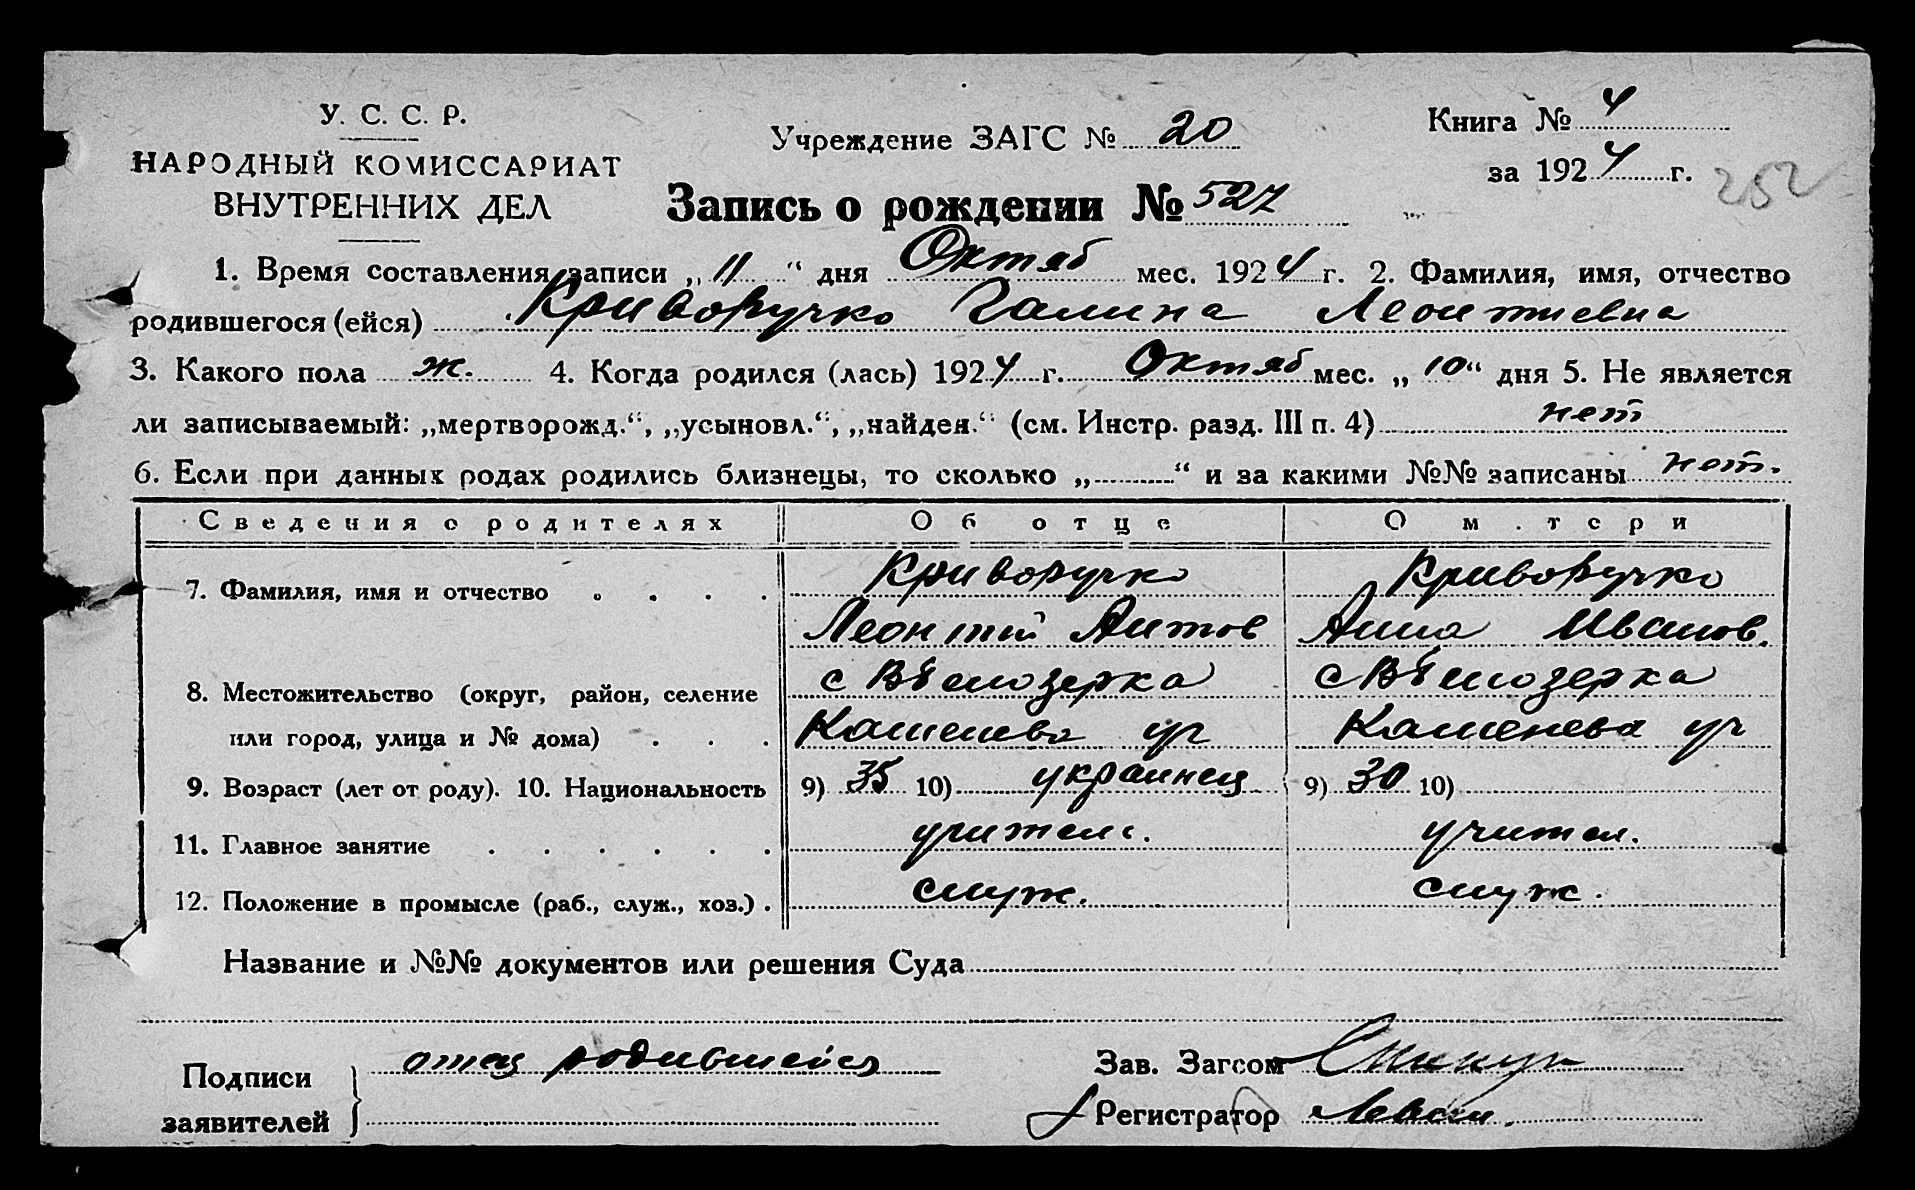 У. С. С. Р.
НАРОДНЫЙ КОМИССАРИАТ
ВНУТРЕННИХ ДЕЛ
Учреждение ЗАГС № 20
Книга № 4
за 1924 г.
252
Запись о рождении № 527
1. Время составления записи „11“ дня Октяб мес. 1924 г. 2. Фамилия, имя, отчество
родившегося (ейся) Криворучко Галина Леонтиевна
3. Какого пола ж. 4. Когда родился (лась) 1924 г. Октяб мес. „10“ дня 5. Не является
ли записываемый: „мертворожд.“, „усыновл.“, „найден.“ (см. Инстр. разд. III п. 4) нет
6. Если при данных родах родились близнецы, то сколько „ “ и за какими №№ записаны нет.
Сведения о родителях Об отце О м.тери
7. Фамилия, имя и отчество Криворучко Криворучко
Леонтий Антов Анна Иванов.
8. Местожительство (округ, район, селение с Вѣлозерка с Вѣлозерка
или город, улица и № дома) Каменева ул Каменева ул
9. Возраст (лет от роду). 10. Национальность 9) 35 10) украинец 9) 30 10)
11. Главное занятие учитель. учител.
12. Положение в промысле (раб., служ., хоз.) служ. служ.
Название и №№ документов или решения Суда
Подписи
заявителей
отец родившейся
Зав. Загсом
Регистратор